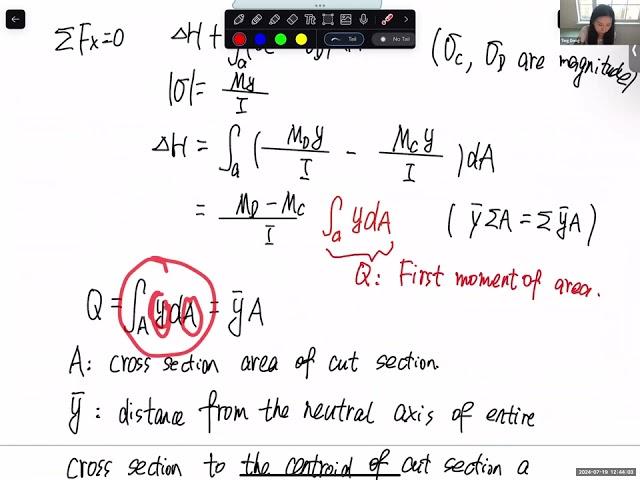 ΣFx=0 ΔH +
(σc, σD are magnitude)
|σ| = My/I
ΔH = ∫a ( MDy/I − Mcy/I ) dA
= MD − Mc/I ∫a ydA ( ȳΣA = ΣȳA )
Q: First moment of area.
Q = ∫A ydA = ȳA
A: cross section area of cut section.
ȳ: distance from the neutral axis of entire
cross section to the centroid of cut section a
Tail
No Tail
2024-07-19 12:44:03